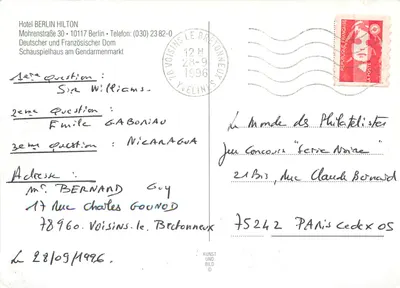 Hotel BERLIN HILTON
Mohrenstraße 30 • 10117 Berlin • Telefon: (030) 23 82-0
Deutscher und Französischer Dom
Schauspielhaus am Gendarmenmarkt
78 VOISINS-LE-BRETONNEUX
12 H
28-9
1996
YVELINES
1ère question :
Sir Williams.
2ème question :
Emile GABORIAU
3ème question : NICARAGUA
Adresse :
Mr BERNARD Guy
17 Rue Charles GOUNOD
78960. Voisins. le Bretonneux
Le 28/09/1996.
Le Monde des Philatélistes
Jeu Concours "Série Noire"
21 Bis, Rue Claude Bernard
75242 PARIS Cedex 05
KUNST
UND
BILD